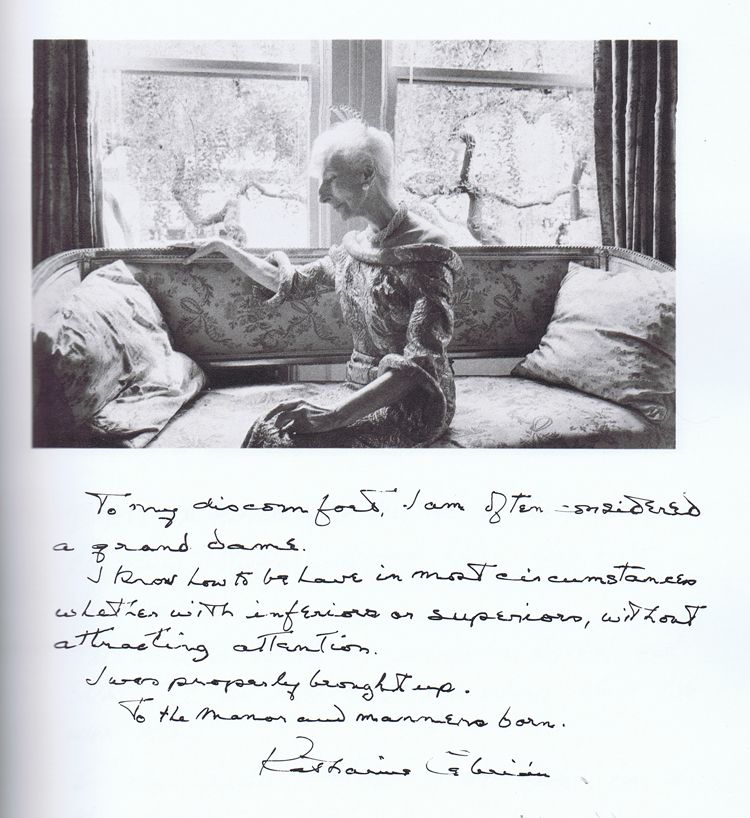 To my discomfort, I am often considered
a grand dame.
I know how to behave in most circumstances
whether with inferiors or superiors, without
attracting attention.
I was properly brought up.
To the manor and manners born.
Katharine Cebrián